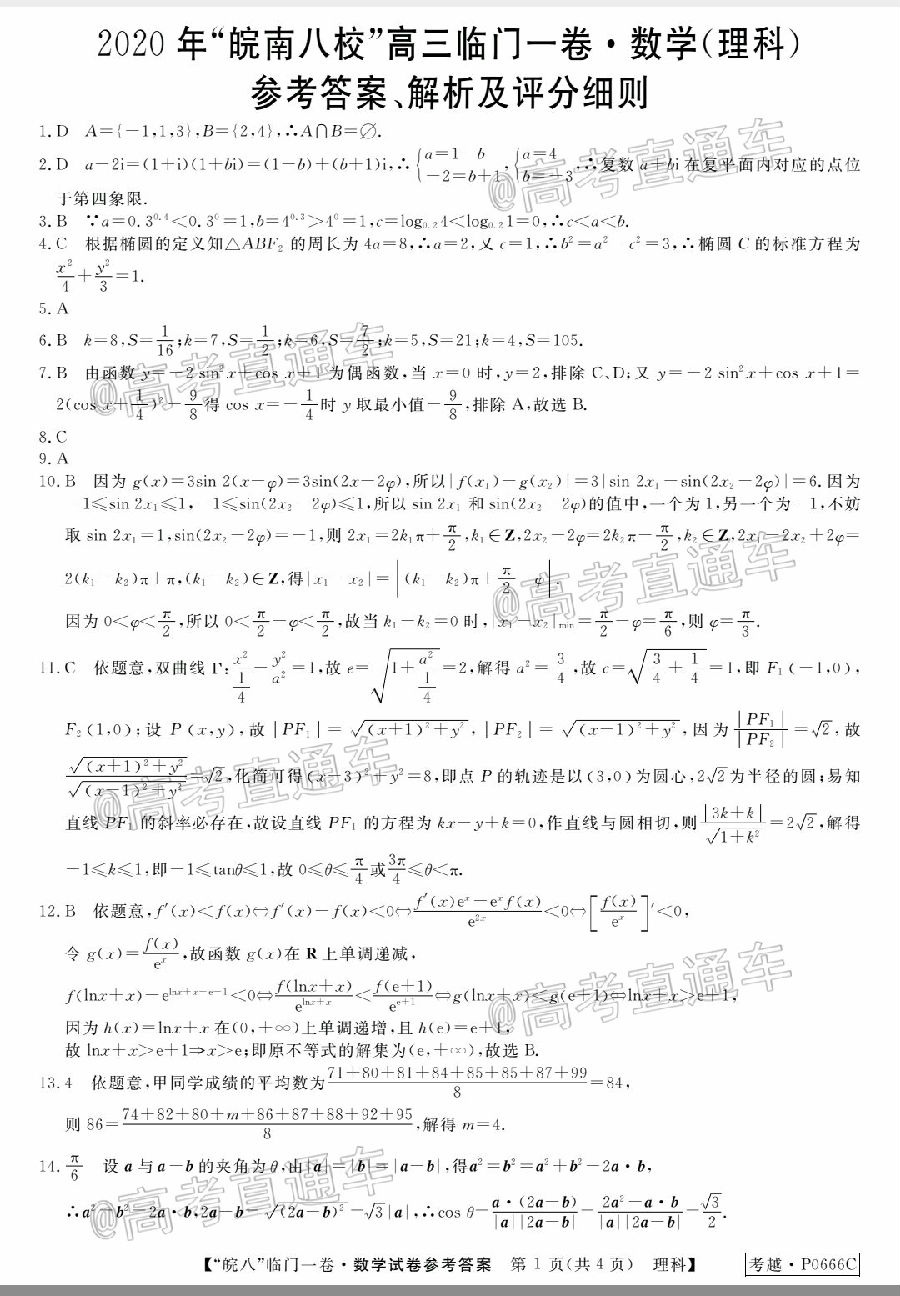 2020 年“皖南八校”高三临门一卷·数学(理科)
参考答案、解析及评分细则
1. D A={-1,1,3},B={2,4},∴A∩B=∅.
2. D a-2i=(1+i)(1+bi)=(1-b)+(b+1)i,∴{a=1 b, -2=b+1, {a=4, b=-3, ∴复数 a+bi 在复平面内对应的点位
于第四象限.
3. B ∵a=0.3^0.4<0.3^0=1,b=4^0.3>4^0=1,c=log_0.2 4<log_0.2 1=0,∴c<a<b.
4. C 根据椭圆的定义知△ABF₂ 的周长为 4a=8,∴a=2,又 c=1,∴b²=a² c²=3,∴椭圆 C 的标准方程为
x²/4+y²/3=1.
5. A
6. B k=8,S=1/16;k=7,S=1/2;k=6,S=7/2;k=5,S=21;k=4,S=105.
7. B 由函数 y=-2 sin²x+cos x+1 为偶函数,当 x=0 时,y=2,排除 C、D;又 y=-2 sin²x+cos x+1=
2(cos x+1/4)²-9/8得 cos x=-1/4时 y 取最小值-9/8,排除 A,故选 B.
8. C
9. A
10. B 因为 g(x)=3sin 2(x-φ)=3sin(2x-2φ),所以|f(x₁)-g(x₂)|=3|sin 2x₁-sin(2x₂-2φ)|=6.因为
1≤sin 2x₁≤1, 1≤sin(2x₂ 2φ)≤1,所以 sin 2x₁ 和 sin(2x₂ 2φ)的值中,一个为 1,另一个为 1,不妨
取 sin 2x₁=1,sin(2x₂-2φ)=-1,则 2x₁=2k₁π+π/2,k₁∈Z,2x₂-2φ=2k₂π-π/2,k₂∈Z,2x₁-2x₂+2φ=
2(k₁ k₂)π+π,(k₁ k₂)∈Z,得|x₁ x₂|=|(k₁ k₂)π+π/2 φ|.
因为 0<φ<π/2,所以 0<π/2-φ<π/2,故当 k₁-k₂=0 时,|x₁-x₂|min=π/2-φ=π/6,则 φ=π/3.
11. C 依题意,双曲线 Γ:x²/(1/4)-y²/a²=1,故 e=√(1+a²/(1/4))=2,解得 a²=3/4,故 c=√(3/4+1/4)=1,即 F₁(-1,0),
F₂(1,0);设 P(x,y),故|PF₁|=√((x+1)²+y²),|PF₂|=√((x-1)²+y²),因为|PF₁|/|PF₂|=√2,故
√((x+1)²+y²)/√((x-1)²+y²)=√2,化简可得(x-3)²+y²=8,即点 P 的轨迹是以(3,0)为圆心,2√2为半径的圆;易知
直线 PF₁ 的斜率必存在,故设直线 PF₁ 的方程为 kx-y+k=0,作直线与圆相切,则|3k+k|/√(1+k²)=2√2,解得
-1≤k≤1,即-1≤tanθ≤1,故 0≤θ≤π/4或3π/4≤θ<π.
12. B 依题意,f′(x)<f(x)⇔f′(x)-f(x)<0⇔(f′(x)eˣ-eˣf(x))/e²ˣ<0⇔[f(x)/eˣ]′<0,
令 g(x)=f(x)/eˣ,故函数 g(x)在 R 上单调递减,
f(lnx+x)-e^(lnx+x-e-1)<0⇔f(lnx+x)/e^(lnx+x)<f(e+1)/e^(e+1)⇔g(lnx+x)<g(e+1)⇔lnx+x>e+1,
因为 h(x)=lnx+x 在(0,+∞)上单调递增,且 h(e)=e+1,
故 lnx+x>e+1⇒x>e;即原不等式的解集为(e,+∞),故选 B.
13. 4 依题意,甲同学成绩的平均数为(71+80+81+84+85+85+87+99)/8=84,
则 86=(74+82+80+m+86+87+88+92+95)/8,解得 m=4.
14. π/6 设 a 与 a-b 的夹角为 θ,由|a|=|b|=|a-b|,得a²=b²=a²+b²-2a·b,
∴a²=b²=2a·b,2a-b=√(2a-b)²=√3|a|,∴cos θ=a·(2a-b)/|a||2a-b|=(2a²-a·b)/|a||2a-b|=√3/2.
【“皖八”临门一卷·数学试卷参考答案 第 1 页(共 4 页) 理科】
考越·P0666C
@高考直通车
@高考直通车
@高考直通车
@高考直通车
@高考直通车
@高考直通车
@高考直通车